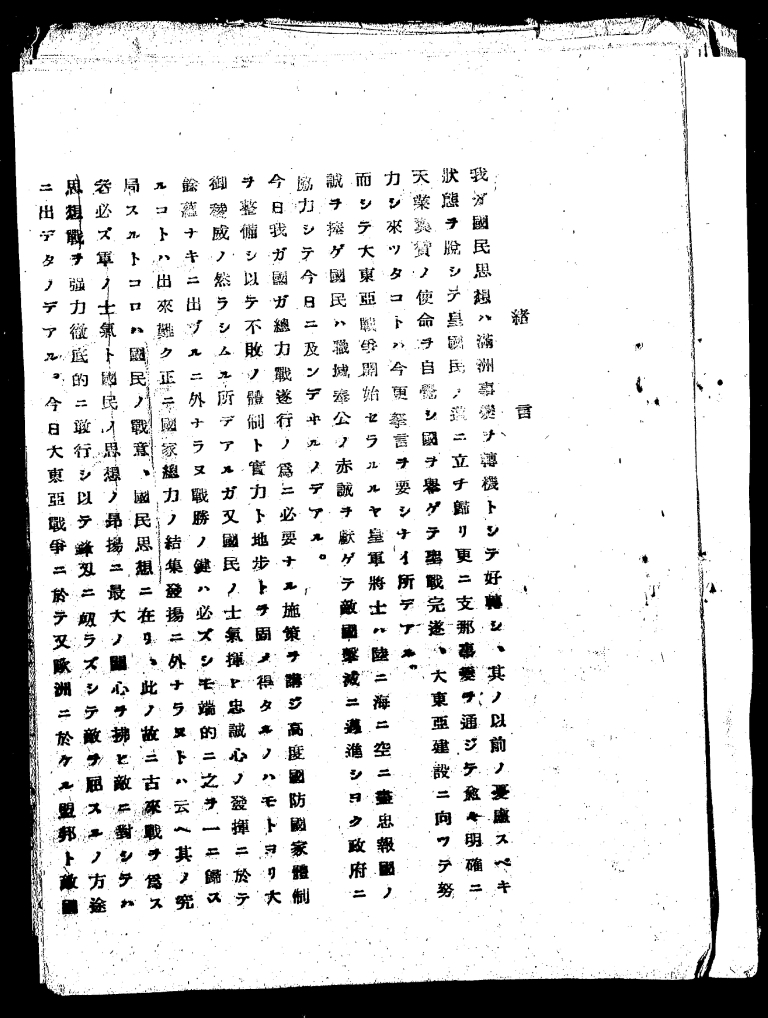 緒言
我ガ國民思想ハ滿洲事變ヲ轉機トシテ好轉シ、其ノ以前ノ憂慮スベキ
狀態ヲ脫シテ皇國民ノ道ニ立チ歸リ更ニ支那事變ヲ通ジテ愈々明確ニ
天業翼贊ノ使命ヲ自覺シ國ヲ擧ゲテ聖戰完遂、大東亞建設ニ向ツテ努
力シ來ツタコトハ今更孳言ヲ要シナイ所デアル。
而シテ大東亞戰爭開始セラルルヤ皇軍將士ハ陸ニ海ニ空ニ盡忠報國ノ
誠ヲ捧ゲ國民ハ職域奉公ノ赤誠ヲ獻ゲテ敵國擊滅ニ邁進シヨク政府ニ
協力シテ今日ニ及ンデヰルノデアル。
今日我ガ國ガ總力戰遂行ノ爲ニ必要ナル施策ヲ講ジ高度國防國家體制
ヲ整備シ以テ不敗ノ體制ト實力ト地步トヲ固メ得タルノハモトヨリ大
御稜威ノ然ラシムル所デアルガ又國民ノ士氣揮ト忠誠心ノ發揮ニ於テ
餘蘊ナキニ出ヅルニ外ナラヌ戰勝ノ鍵ハ必ズシモ端的ニ之ヲ一ニ歸ス
ルコトハ出來難ク正ニ國家總力ノ結集發揚ニ外ナラヌトハ云ヘ其ノ究
局スルトコロハ國民ノ戰意、國民思想ニ在リ、此ノ故ニ古來戰ヲ爲ス
者必ズ軍ノ士氣ト國民ノ思想ノ昂揚ニ最大ノ關心ヲ拂ヒ敵ニ對シテハ
思想戰ヲ强力徹底的ニ敢行シ以テ鋒刃ニ衂ラズシテ敵ヲ屈スルノ方途
ニ出デタノデアル。今日大東亞戰爭ニ於テ又歐洲ニ於ケル盟邦ト敵國